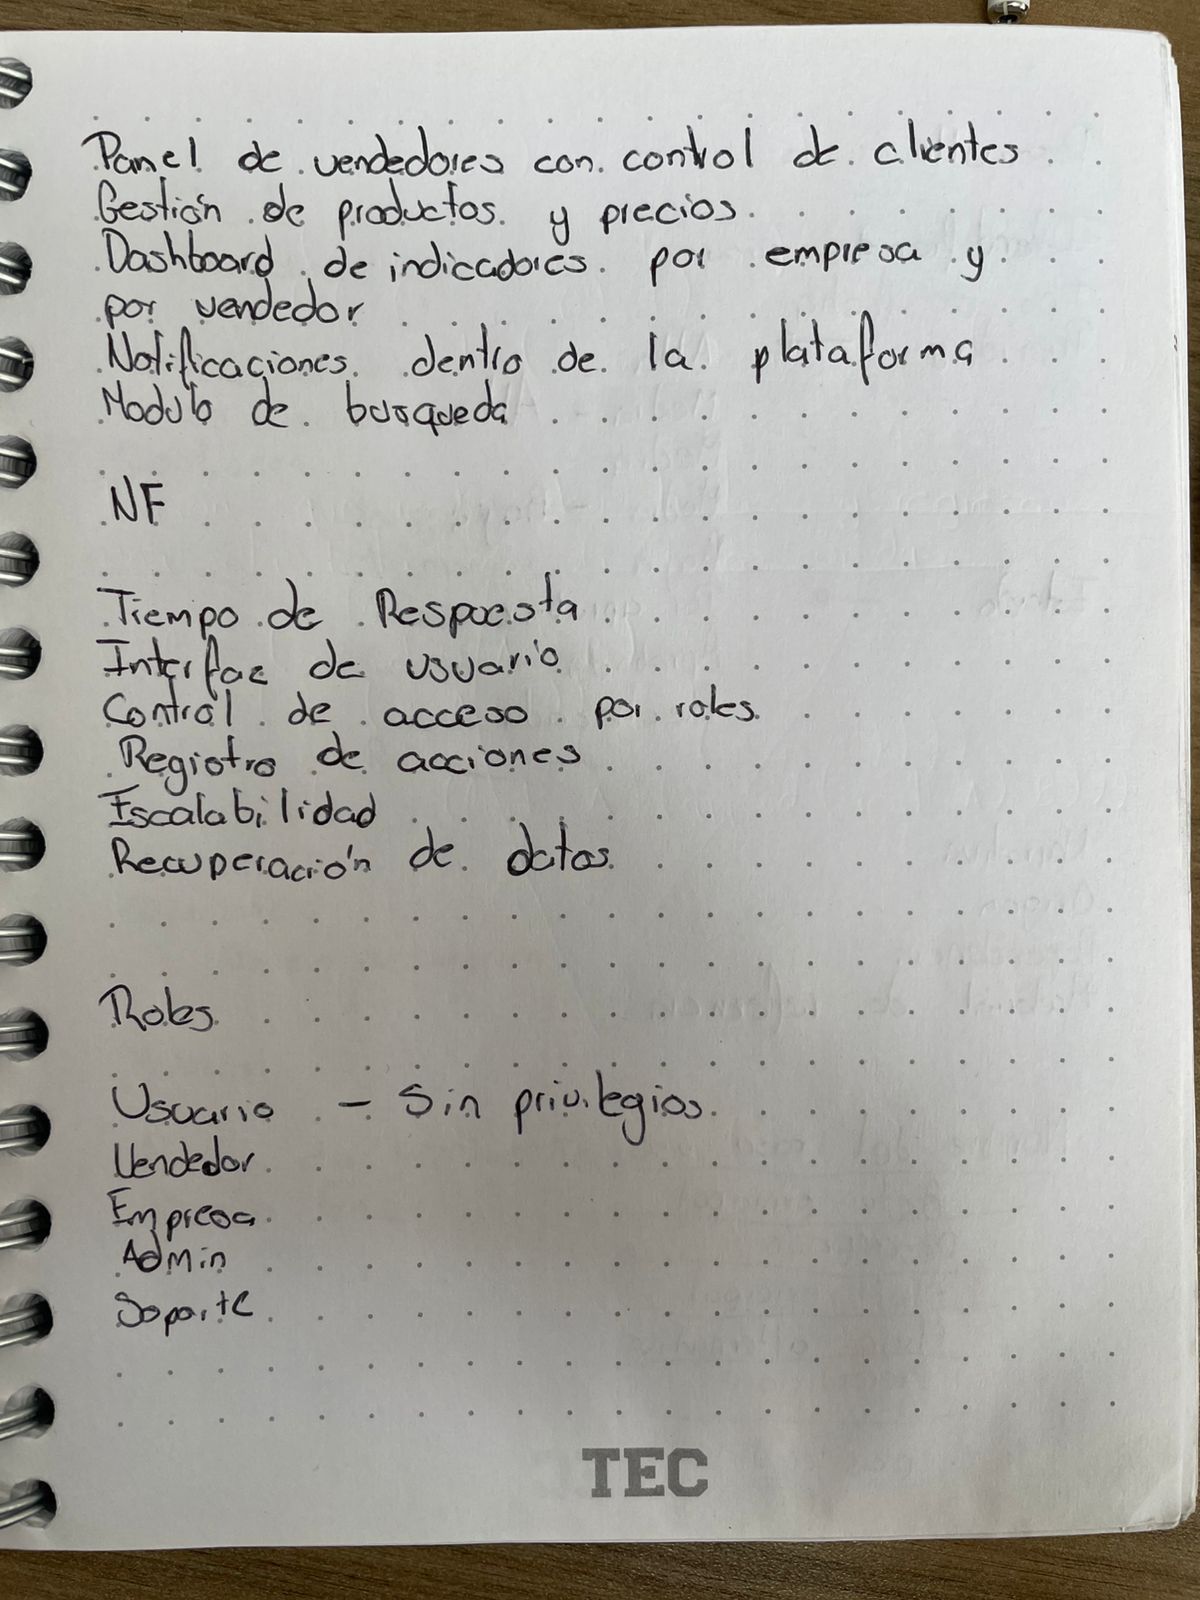 Panel de vendedores con control de clientes
Gestión de productos y precios
Dashboard de indicadores por empresa y
por vendedor
Notificaciones dentro de la plataforma
Modulo de busqueda
NF
Tiempo de Respuesta
Interfaz de usuario
Control de acceso por roles
Registro de acciones
Escalabilidad
Recuperación de datos
Roles
Usuario - Sin privilegios
Vendedor
Empresa
Admin
Soporte
TEC